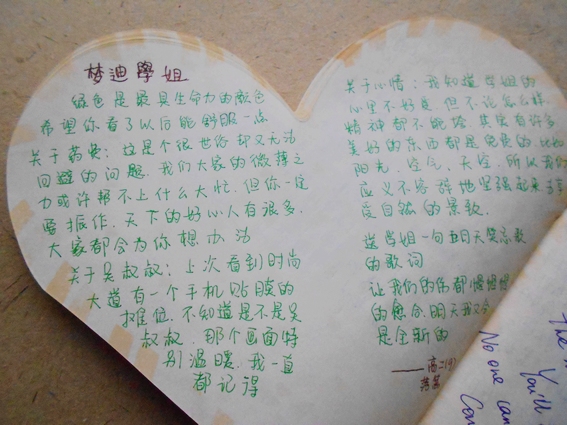 梦迪學姐
绿色是最具生命力的颜色
希望你看了以后能舒服一点
关于药费：这是个很世俗却又无法
回避的问题. 我们大家的微薄之
力或许帮不上什么大忙. 但你一定
要振作. 天下的好心人有很多.
大家都会为你想办法
关于吴叔叔：上次看到时尚
大道有一个手机贴膜的
摊位. 不知道是不是吴
叔叔. 那个画面特
别温暖. 我一直
都记得
关于心情：我知道学姐的
心里不好受. 但不论怎么样.
精神都不能垮. 其实有许多
美好的东西都是免费的. 比如
阳光. 空气. 天空. 所以我们
应义不容辞地坚强起来去享
受自然的景致.
送学姐一句五月天
的歌词
让我们的伤都慢慢慢慢
的愈合. 明天我又会
是全新的
——高二(9)
The
You'll
No one can
Can